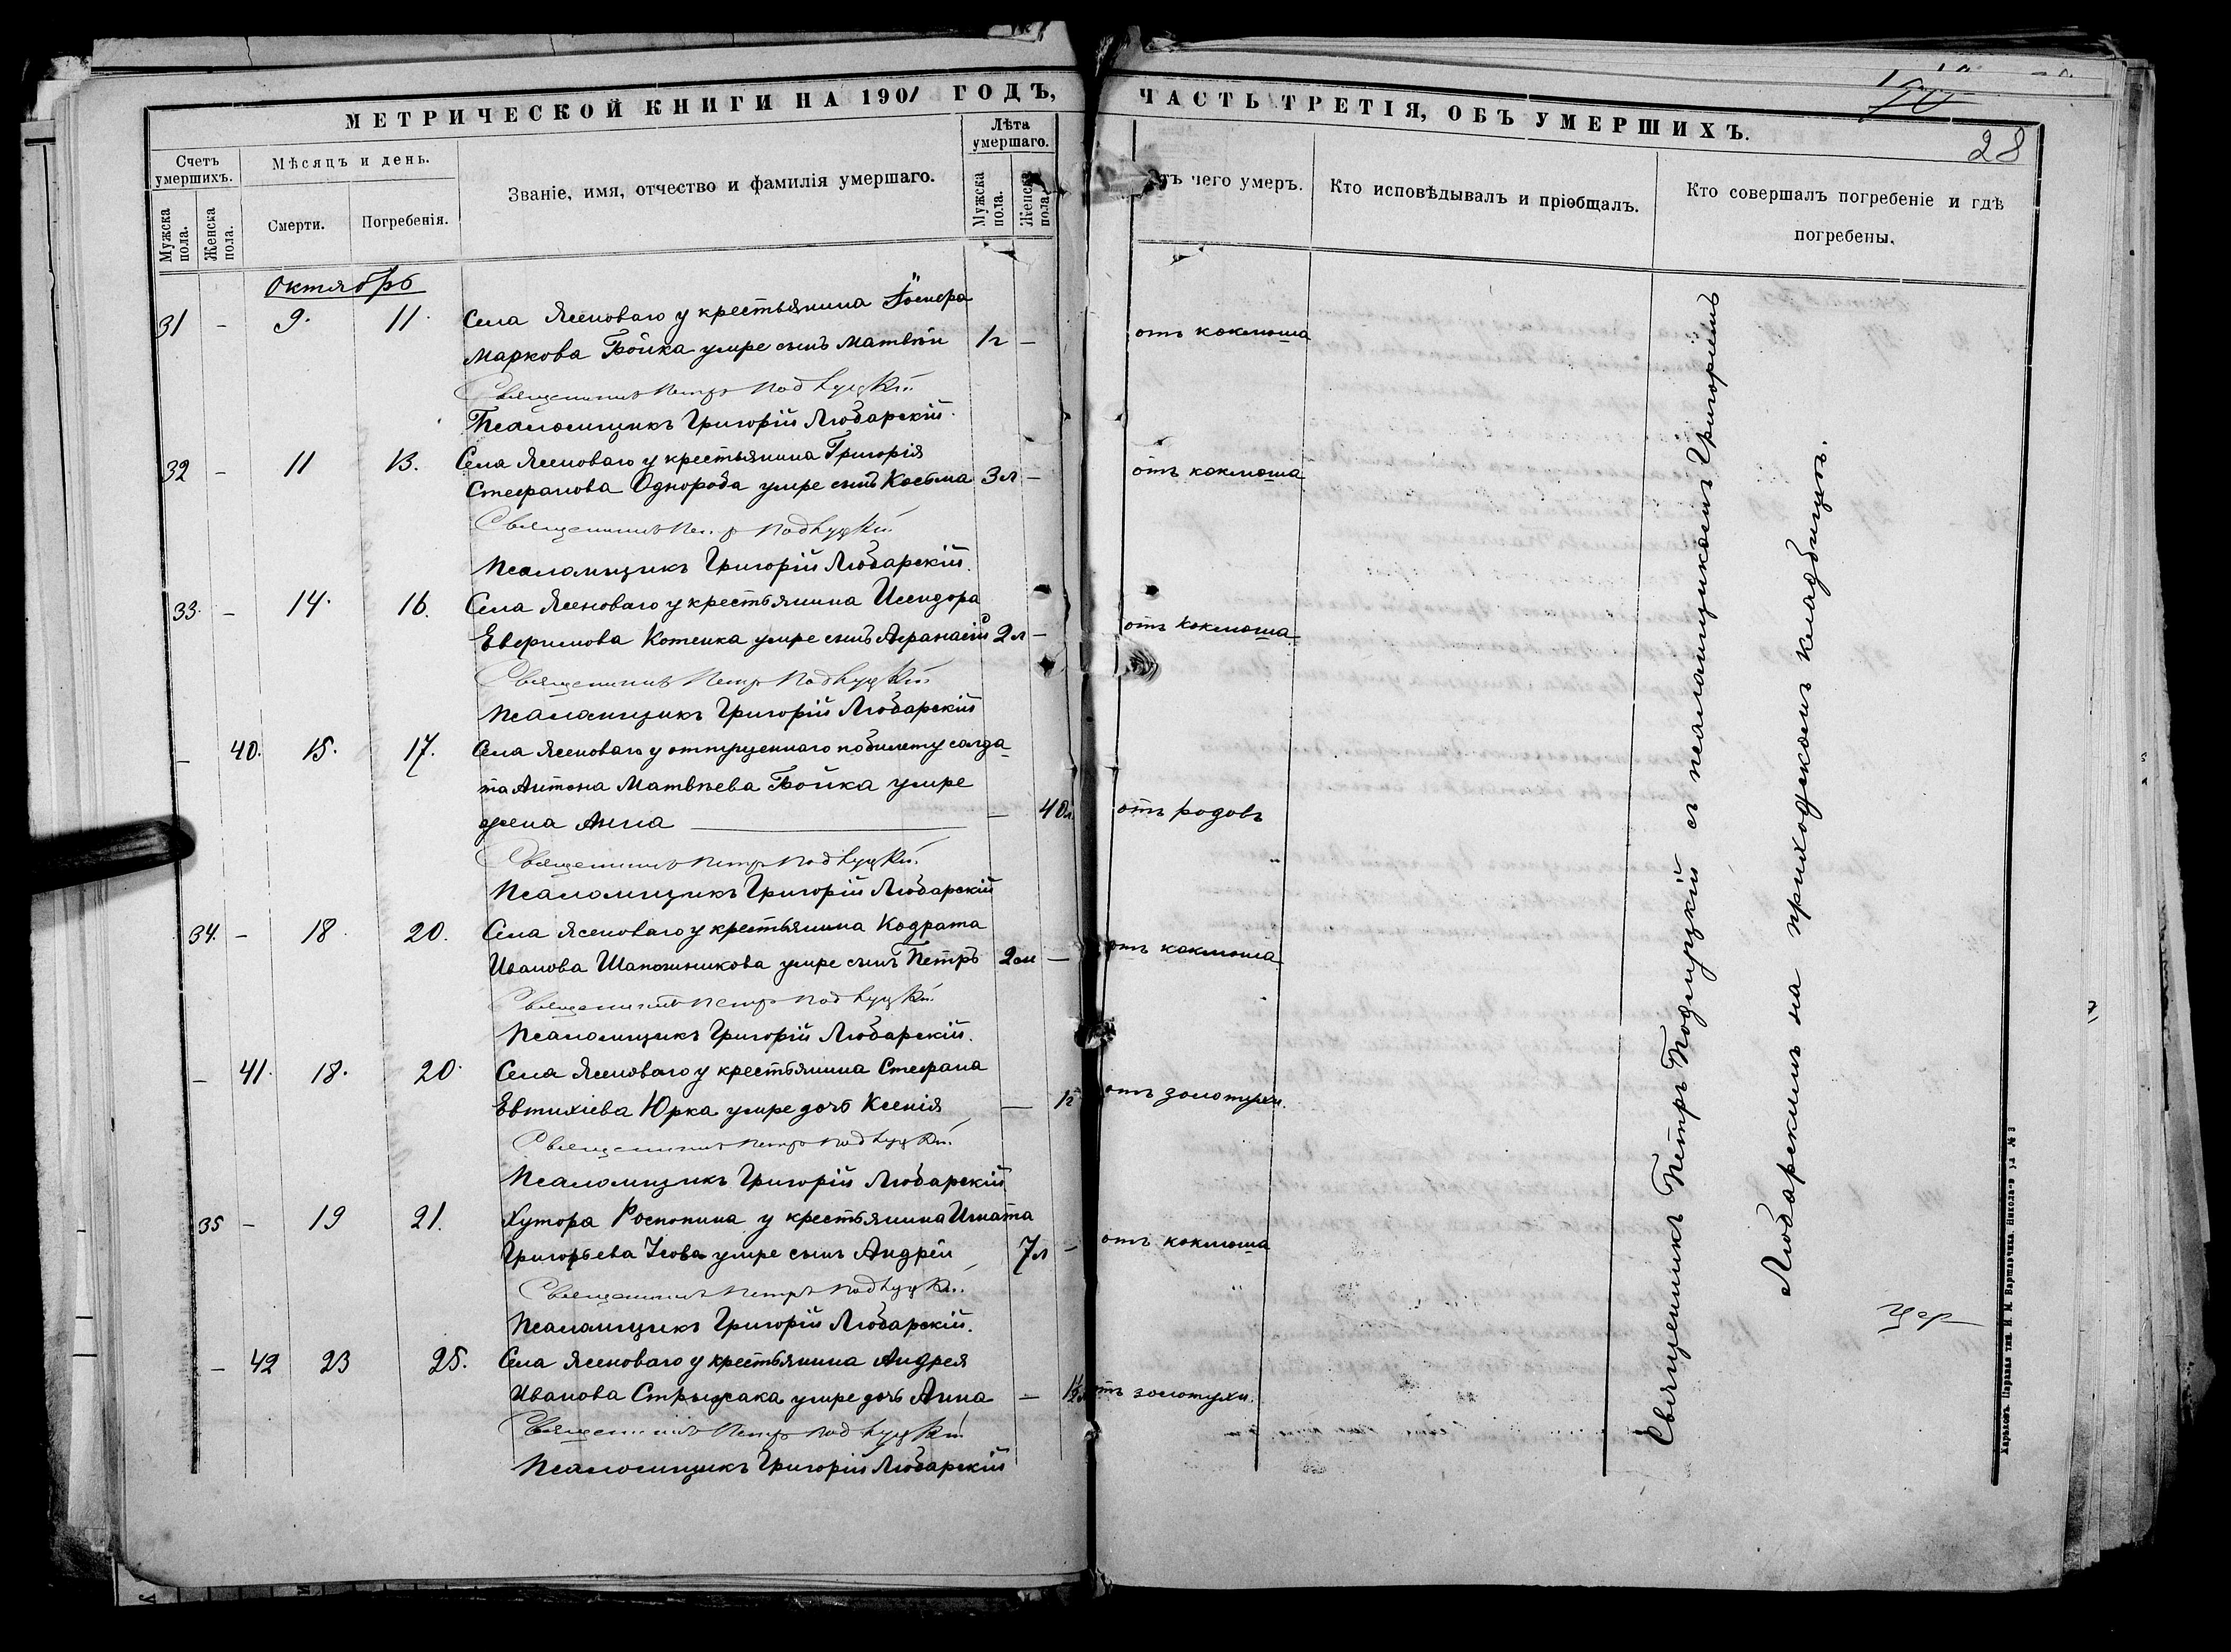 МЕТРИЧЕСКОЙ КНИГИ НА 1901 ГОДЪ,
Счетъ умершихъ.
Мужска пола.
Женска пола.
Мѣсяцъ и день.
Смерти.
Погребенія.
Званіе, имя, отчество и фамилія умершаго.
Лѣта умершаго.
Мужска пола.
Женска пола.
Октябрь
31 - 9. 11. Села Ясеноваго у крестьянина
Маркова Бойка умре сынъ Матвѣй 1г -
Священникъ Петръ Подлуцкій
Псаломщикъ Григорій Любарскій.
32 - 11 13. Села Ясеноваго у крестьянина Григорія
Стефанова Однорода умре сынъ Косьма 3л -
Священникъ Петръ Подлуцкій
Псаломщикъ Григорій Любарскій.
33. - 14. 16. Села Ясеноваго у крестьянина Исидора
Евфимова Котенка умре сынъ Афанасій 2л -
Священникъ Петръ Подлуцкій
Псаломщикъ Григорій Любарскій
- 40. 15. 17. Села Ясеноваго у отпущеннаго по билету солда-
та Антона Матвѣева Бойка умре
жена Анна - 40л.
Священникъ Петръ Подлуцкій.
Псаломщикъ Григорій Любарскій
34. - 18 20. Села Ясеноваго у крестьянина Кодрата
Иванова Шапошникова умре сынъ Петръ 2м -
Священникъ Петръ Подлуцкій.
Псаломщикъ Григорій Любарскій.
- 41. 18. 20. Села Ясеноваго у крестьянина Стефана
Евтихіева Юрка умре дочь Ксенія - 1г
Священникъ Петръ Подлуцкій.
Псаломщикъ Григорій Любарскій
35 - 19 21. Хутора у крестьянина Игната
Григорьева Усова умре сынъ Андрей 7л -
Священникъ Петръ Подлуцкій.
Псаломщикъ Григорій Любарскій.
- 42 23 25. Села Ясеноваго у крестьянина Андрея
Иванова Стрижака умре дочь Анна -
Священникъ Петръ Подлуцкій
Псаломщикъ Григорій Любарскій
ЧАСТЬ ТРЕТІЯ, ОБЪ УМЕРШИХЪ.
28
тъ чего умеръ.
Кто исповѣдывалъ и пріобщалъ.
Кто совершалъ погребеніе и гдѣ погребены.
отъ коклюша
отъ коклюша
отъ коклюша
отъ родовъ
отъ коклюша
отъ золотухи.
отъ коклюша
отъ золотухи.
Священникъ Петръ Подлуцкій съ псаломщикомъ Григоріемъ
Любарскимъ на приходскомъ кладбищѣ.